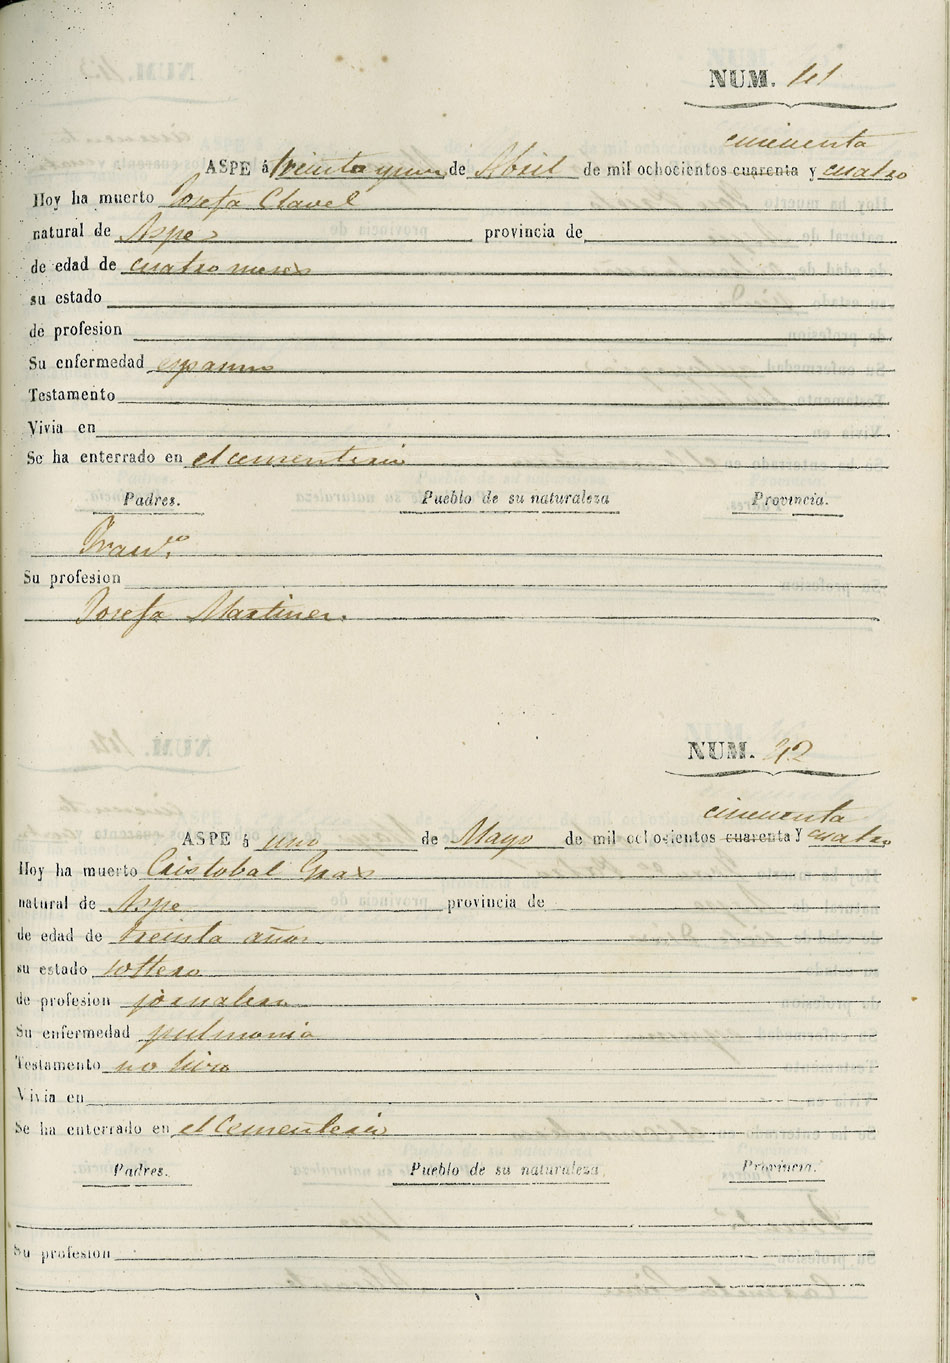 NUM. 41
cincuenta
ASPE á treinta y uno de Abril de mil ochocientos cuarenta y cuatro
Hoy ha muerto Josefa Clavel
natural de Aspe provincia de
de edad de cuatro meses
su estado
de profesion
Su enfermedad espasmo
Testamento
Vivia en
Se ha enterrado en el cementerio
Padres. Pueblo de su naturaleza Provincia.
Franco.
Su profesion
Josefa Martinez.
NUM. 42
cincuenta
ASPE á uno de Mayo de mil ochocientos cuarenta y cuatro
Hoy ha muerto Cristobal Gras
natural de Aspe provincia de
de edad de treinta años
su estado soltero
de profesion jornalero
Su enfermedad pulmonia
Testamento no hizo
Vivia en
Se ha enterrado en el Cementerio
Padres. Pueblo de su naturaleza Provincia.
Su profesion